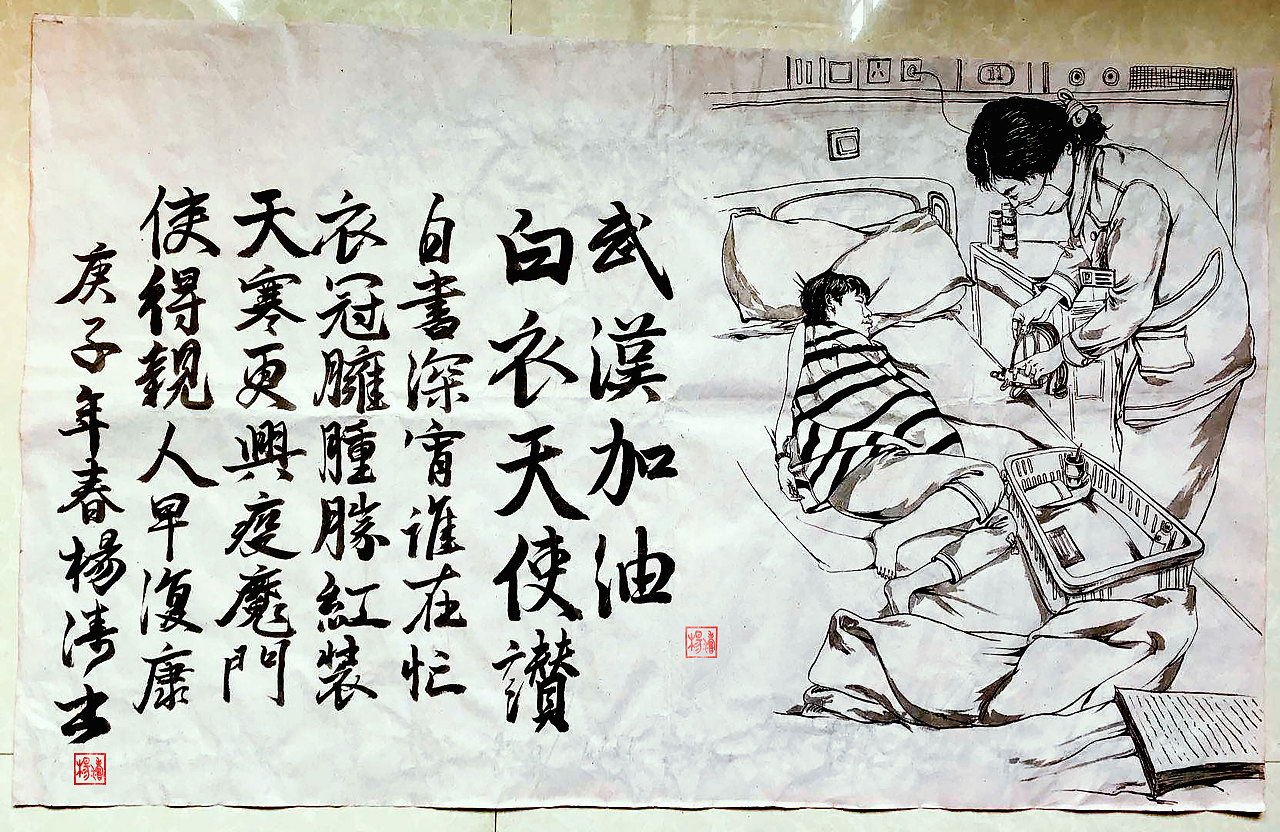 武漢加油
白衣天使讚
白書深宵誰在忙
衣冠臃腫勝紅裝
天寒更興疫魔門
使得親人早復康
庚子年春楊濤书